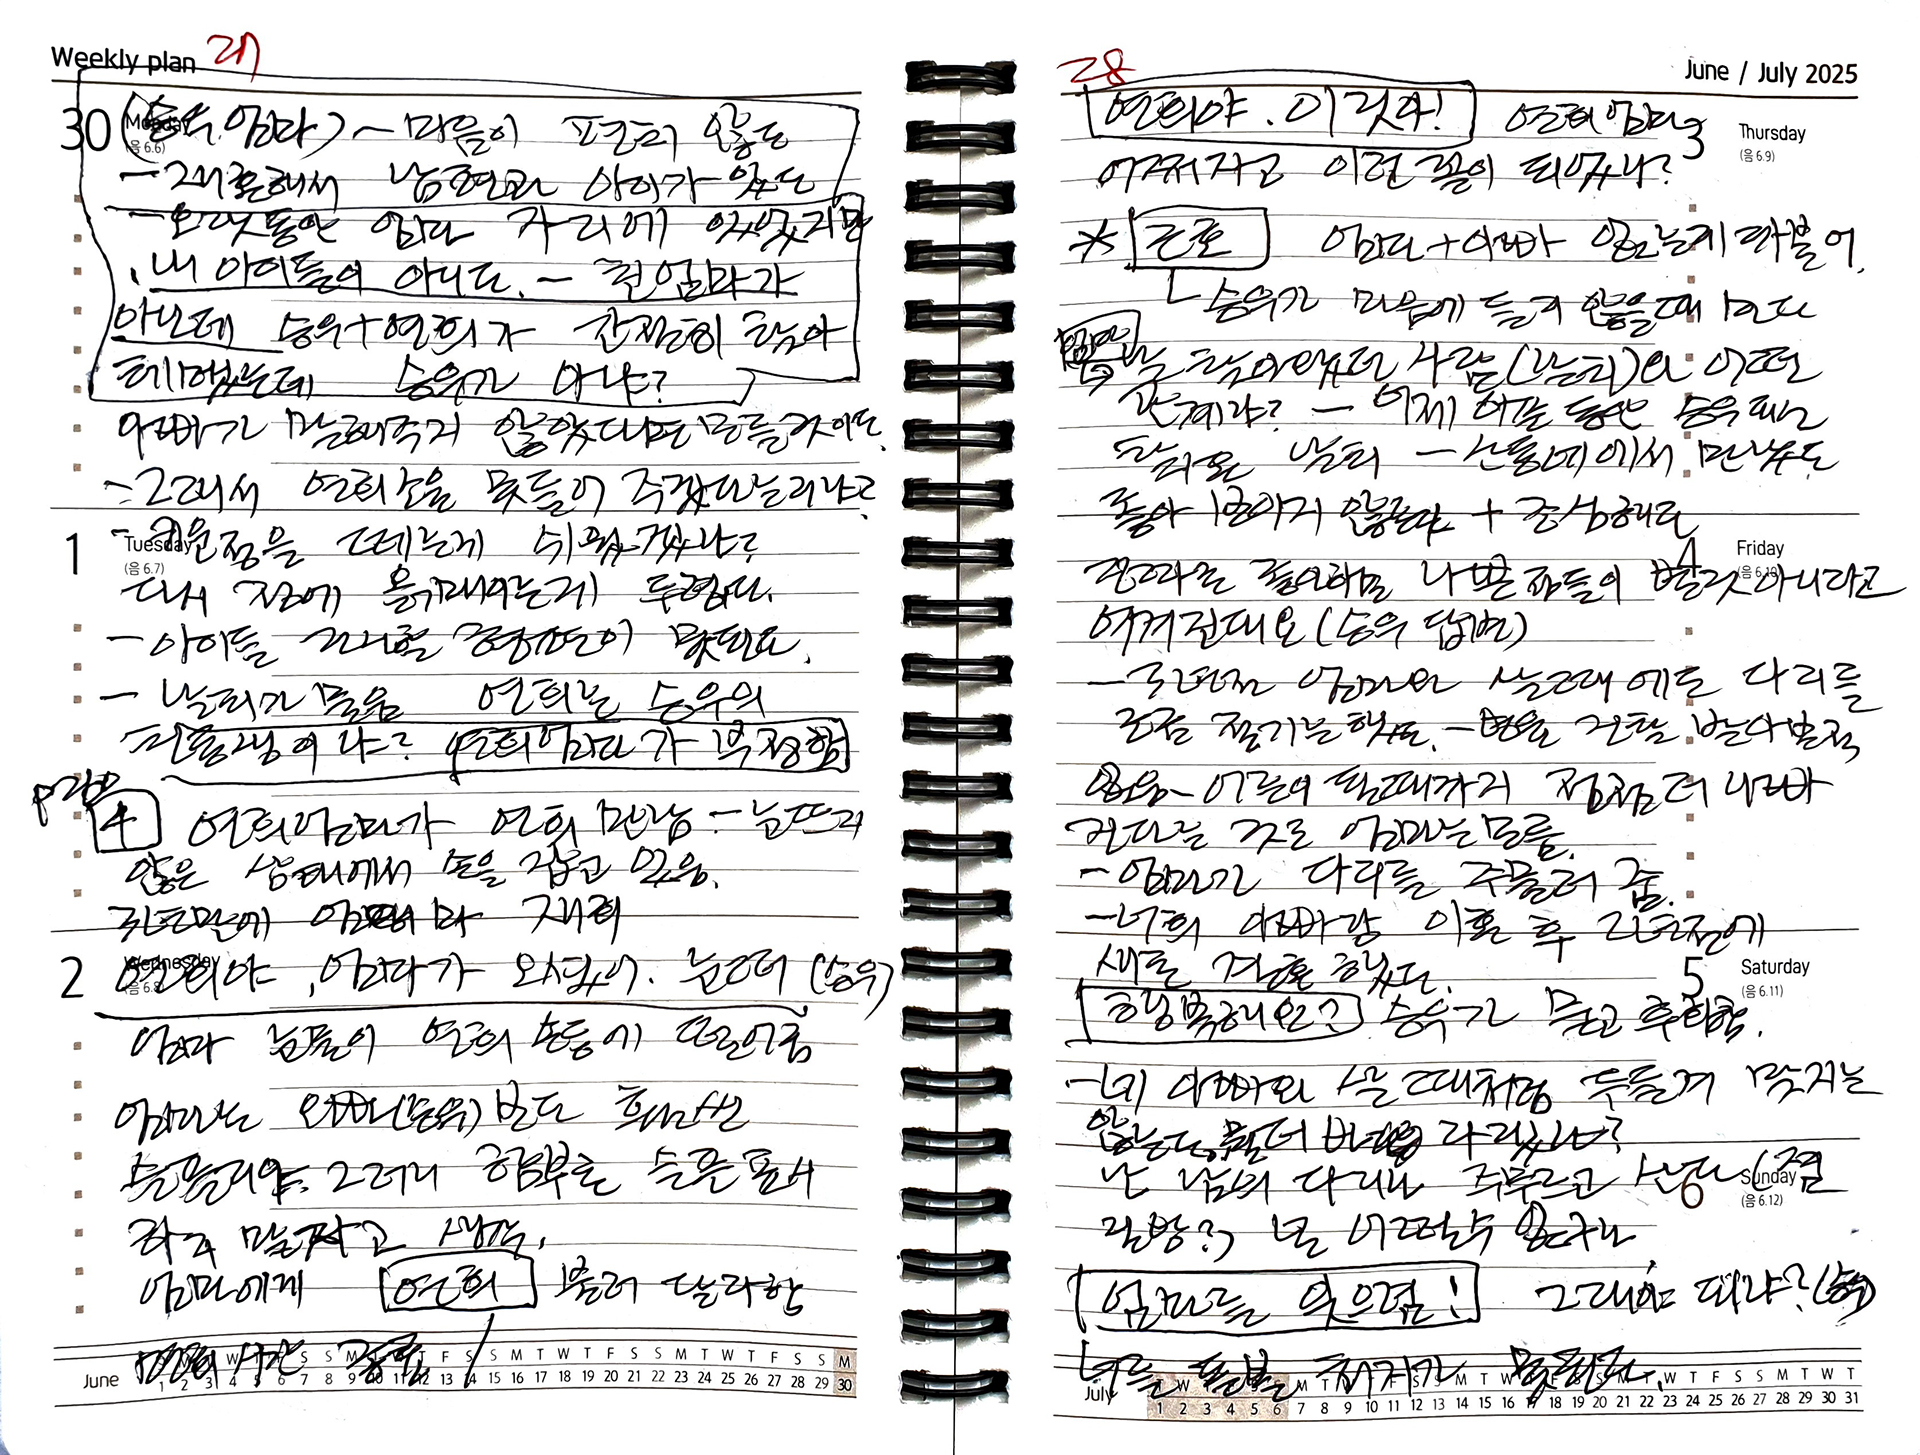 Weekly plan 27
30 Monday (음 6.6)
(승우 엄마) – 마음이 편하지 않는
– 재혼해서 남편과 아이가 있는
– 오랫동안 엄마 자리에 있었지만
, 내 아이들이 아니다. – 친엄마가
아닌데 승우+연희가 간절히 찾아
헤맸는데 승우가 아냐?
아빠가 말해주지 않았다면 모를것이다.
– 그래서 연희소원을 못들어 주겠다는거냐고?
1 Tuesday (음 6.7)
– 키운정을 떼는게 쉬웠겠나?
다시 정에 옭매이는게 두렵다.
– 아이들 그리움 감당이 못된다.
– 날희가 물음 연희는 승우의
친동생이냐? 연희엄마가 부정함
4 연희엄마가 연희 만남 – 눈뜨지
않은 상태에서 손을 잡고 있음.
년만에 엄마 재회
2 Wednesday (음 6.8)
연희야, 엄마가 오셨어. 눈떠 (승우)
엄마 눈물이 연희 손등에 떨어짐
엄마는 오빠(승우)보다 훨씬
슬플거야. 그러니 함부로 슬픈 표시
하지 말자고 생각.
엄마에게 연희 불러 달라함
면회시간 종료
June
S M T W T F S S M T W T F S S M T W T F S S M T W T F S S M
1 2 3 4 5 6 7 8 9 10 11 12 13 14 15 16 17 18 19 20 21 22 23 24 25 26 27 28 29 30
28 June / July 2025
연희야. 이것아! 연희엄마
3 Thursday (음 6.9)
어쩌자고 이런 꼴이 되었냐?
* 근호 엄마+아빠 없는게 더 좋을
승우가 마음에 들지 않을때 마다
엄마
날 찾아왔던 사람(날희)와 어떤
관계냐? – 이제 승우
찾아온 날희 – 산동네에서 만났는
좋아 보이지 않는다 + 조심해라
4 Friday (음 6.10)
전과는 중요하면 나쁜 점들이 별것 아니라고
여겨진대요 (승우 답변)
– 몇년전 엄마와 살 그때에도 다리를
조금 절기는 했는 – 병원 검진 받아본적
없음 – 어른이 될때까지 점점 더 나빠
진다는 것도 엄마는 모름.
– 엄마가 다리를 주물러 줌.
– 너희 아빠랑 이혼 후 년전에
새로 결혼 했다.
5 Saturday (음 6.11)
행복해요? 승우가 묻고 후회함.
– 네 아빠와 살 때처럼 두들겨 맞지는
않는다. 뭘 더 바라겠냐?
6 Sunday (음 6.12)
난 남의 다리나 주무르고 산다 (찜
질방?) 난 어쩔수 없구나
엄마를 잊으렴! 그래야 되냐? (승우)
너를 돌볼 처지가 못된다.
July
T W T F S S M T W T F S S M T W T F S S M T W T F S S M T W T
1 2 3 4 5 6 7 8 9 10 11 12 13 14 15 16 17 18 19 20 21 22 23 24 25 26 27 28 29 30 31